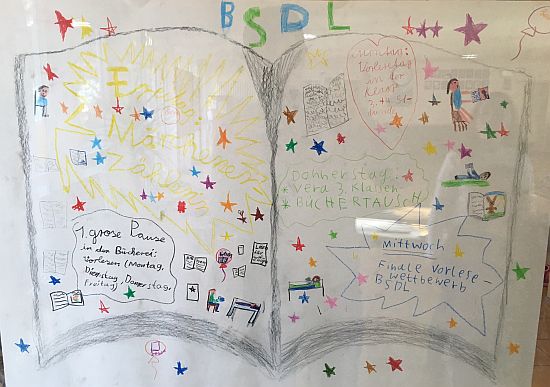 BSDL
Märchener
Zählerin
1. grose Pause
in der Bücherei:
Vorlesen (Montag,
Dienstag, Donerstag,
Freitag)
Vorlesetag
in der
3.+4. St-
unde
Donnerstag:
* Vera 3. Klassen
* BÜCHERTAUSCH
Mittwoch
Finale Vorlese
wettbewerb
BSDL